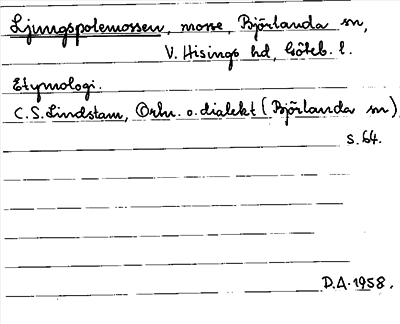 Ljungspolemossen, mosse, Björlanda sn,
V. Hisings hd, Göteb. l.
Etymologi.
C. S. Lindstam, Ortn. o. dialekt (Björlanda sn)
s. 64.
D.A. 1958.